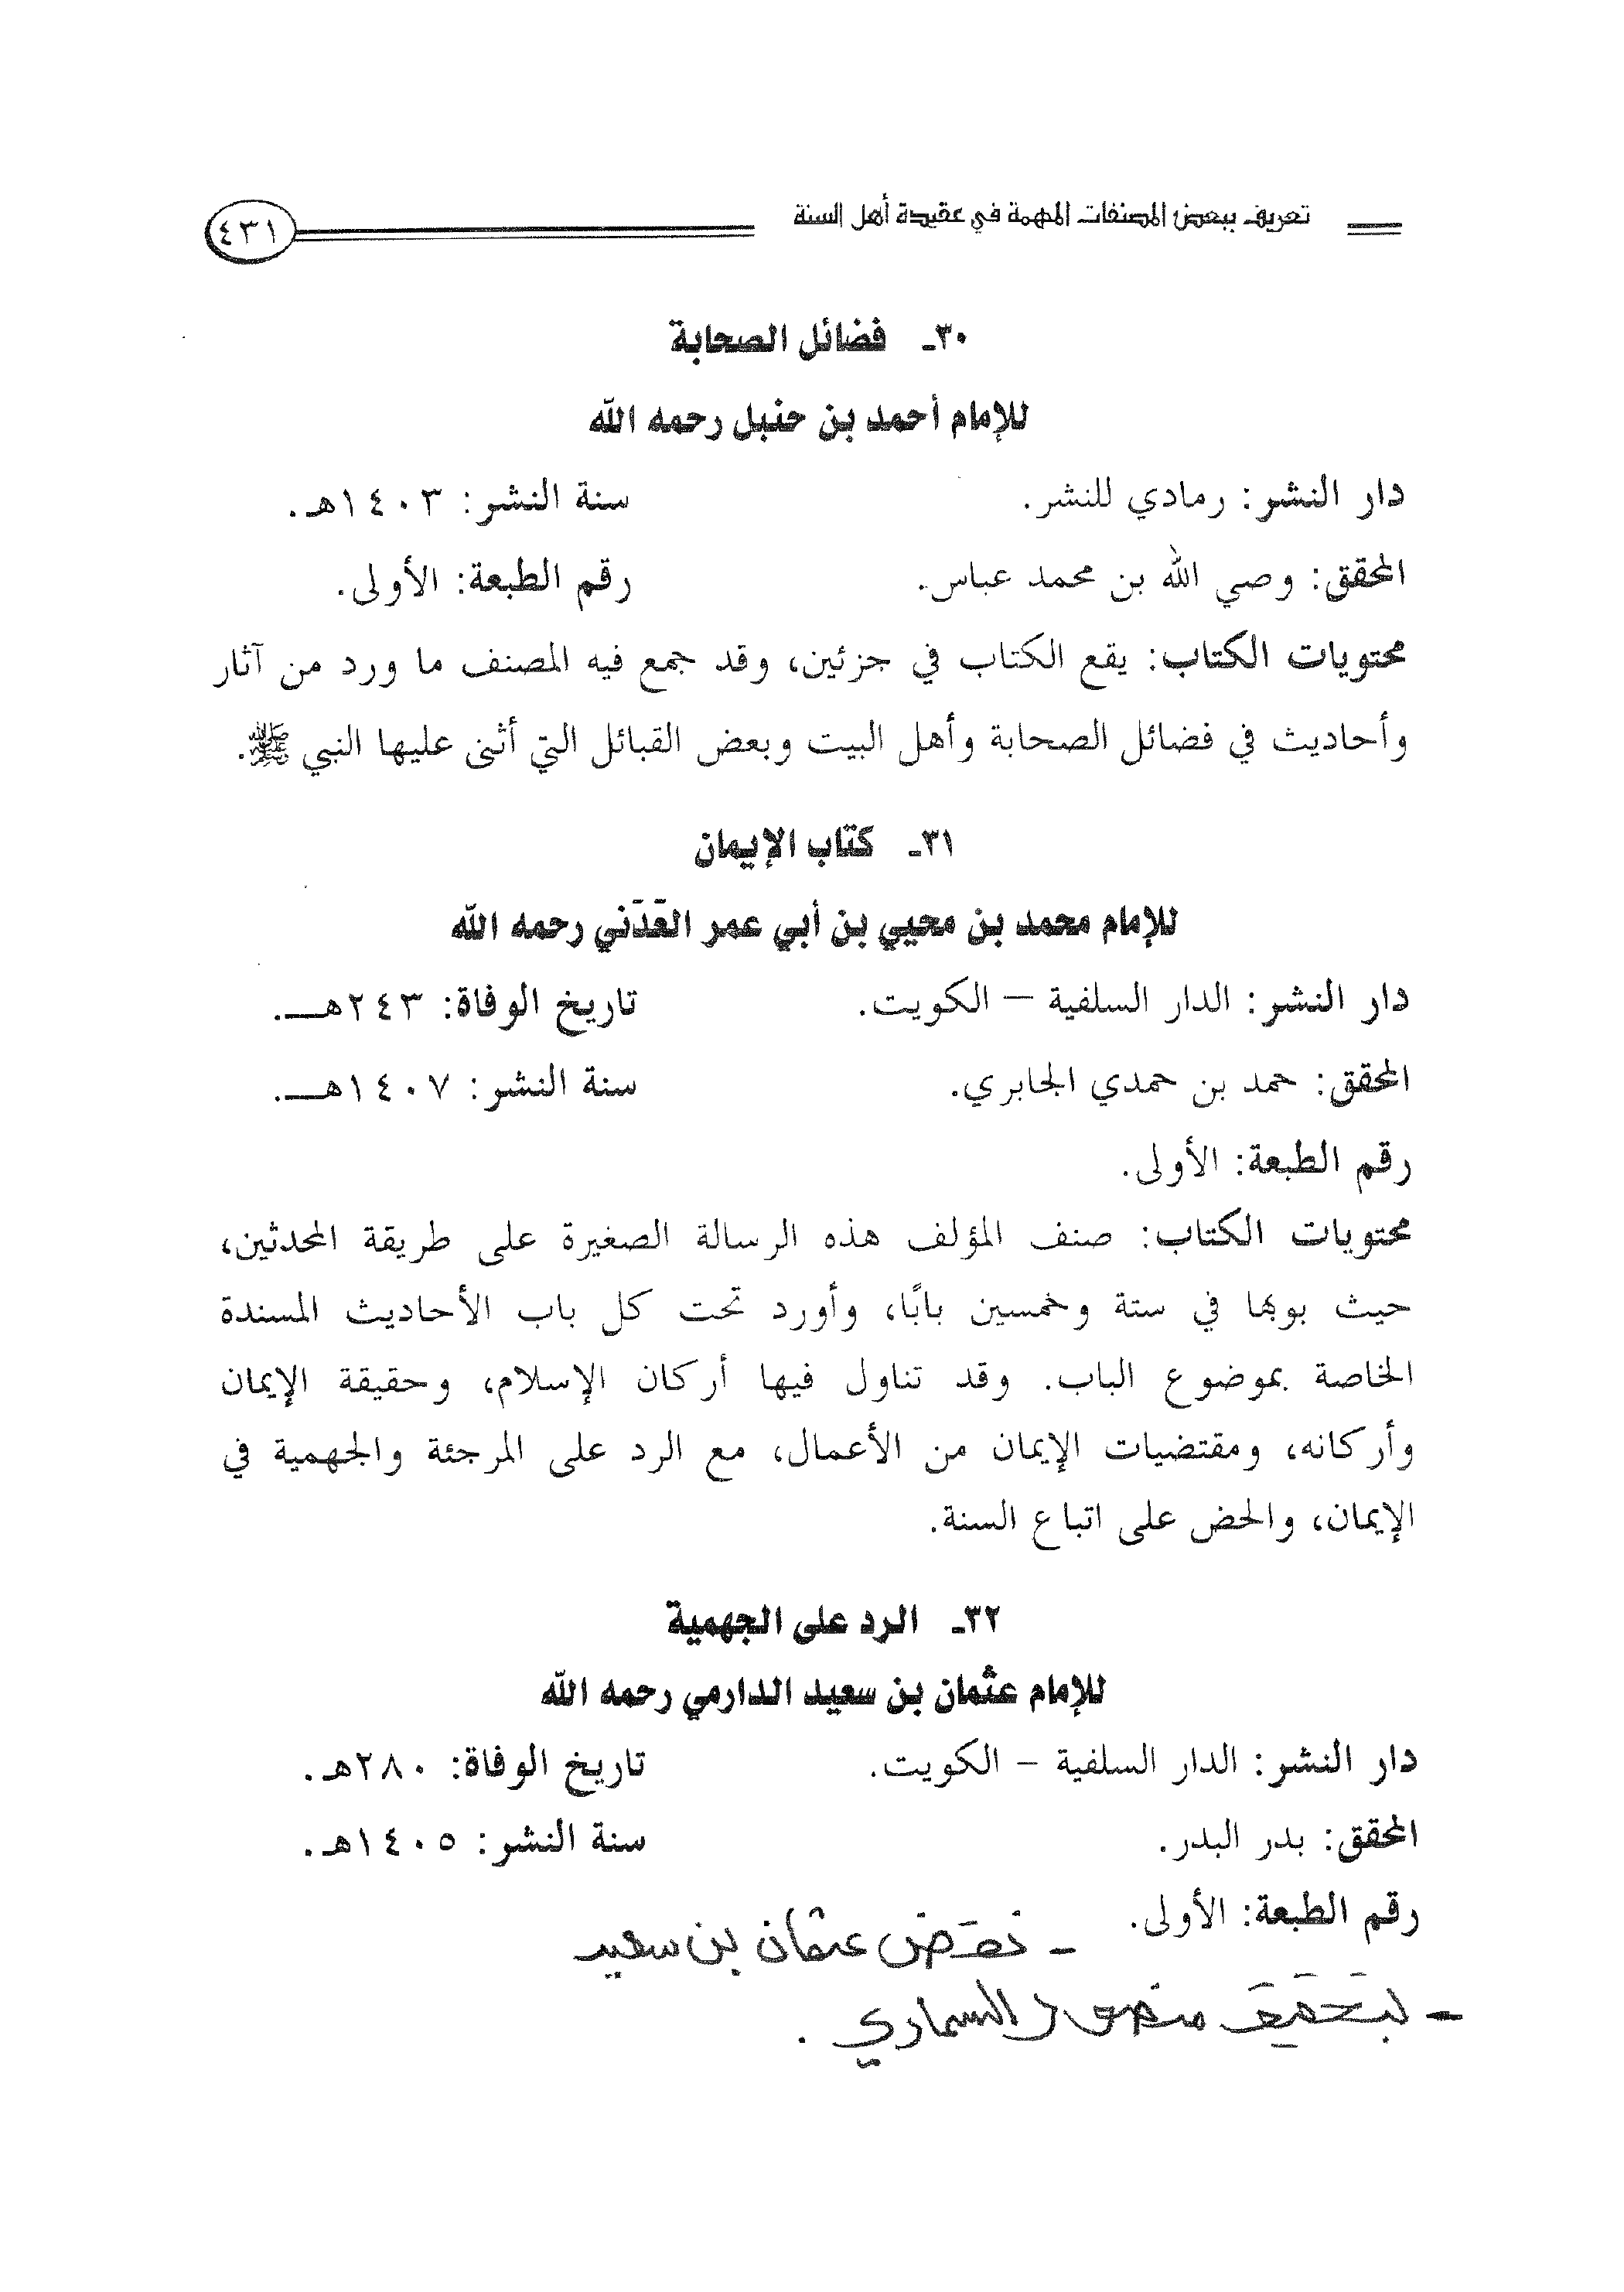 تعريف ببعض المصنفات المهمة في عقيدة أهل السنة
٤٣١
٣٠ـ فضائل الصحابة
للإمام أحمد بن حنبل رحمه الله
دار النشر: رمادي للنشر.
سنة النشر: ١٤٠٣هـ.
المحقق: وصي الله بن محمد عباس.
رقم الطبعة: الأولى.
محتويات الكتاب: يقع الكتاب في جزئين، وقد جمع فيه المصنف ما ورد من آثار
وأحاديث في فضائل الصحابة وأهل البيت وبعض القبائل التي أثنى عليها النبي ﷺ.
٣١ـ كتاب الإيمان
للإمام محمد بن محيي بن أبي عمر العَدَني رحمه الله
دار النشر: الدار السلفية – الكويت.
تاريخ الوفاة: ٢٤٣هـ.
المحقق: حمد بن حمدي الجابري.
سنة النشر: ١٤٠٧هـ.
رقم الطبعة: الأولى.
محتويات الكتاب: صنف المؤلف هذه الرسالة الصغيرة على طريقة المحدثين،
حيث بوبها في ستة وخمسين بابًا، وأورد تحت كل باب الأحاديث المسندة
الخاصة بموضوع الباب. وقد تناول فيها أركان الإسلام، وحقيقة الإيمان
وأركانه، ومقتضيات الإيمان من الأعمال، مع الرد على المرجئة والجهمية في
الإيمان، والحض على اتباع السنة.
٣٢ـ الرد على الجهمية
للإمام عثمان بن سعيد الدارمي رحمه الله
دار النشر: الدار السلفية – الكويت.
تاريخ الوفاة: ٢٨٠هـ.
المحقق: بدر البدر.
سنة النشر: ١٤٠٥هـ.
رقم الطبعة: الأولى.
ـ نقض عثمان بن سعيد
ـ بتحقيق منصور السماري.